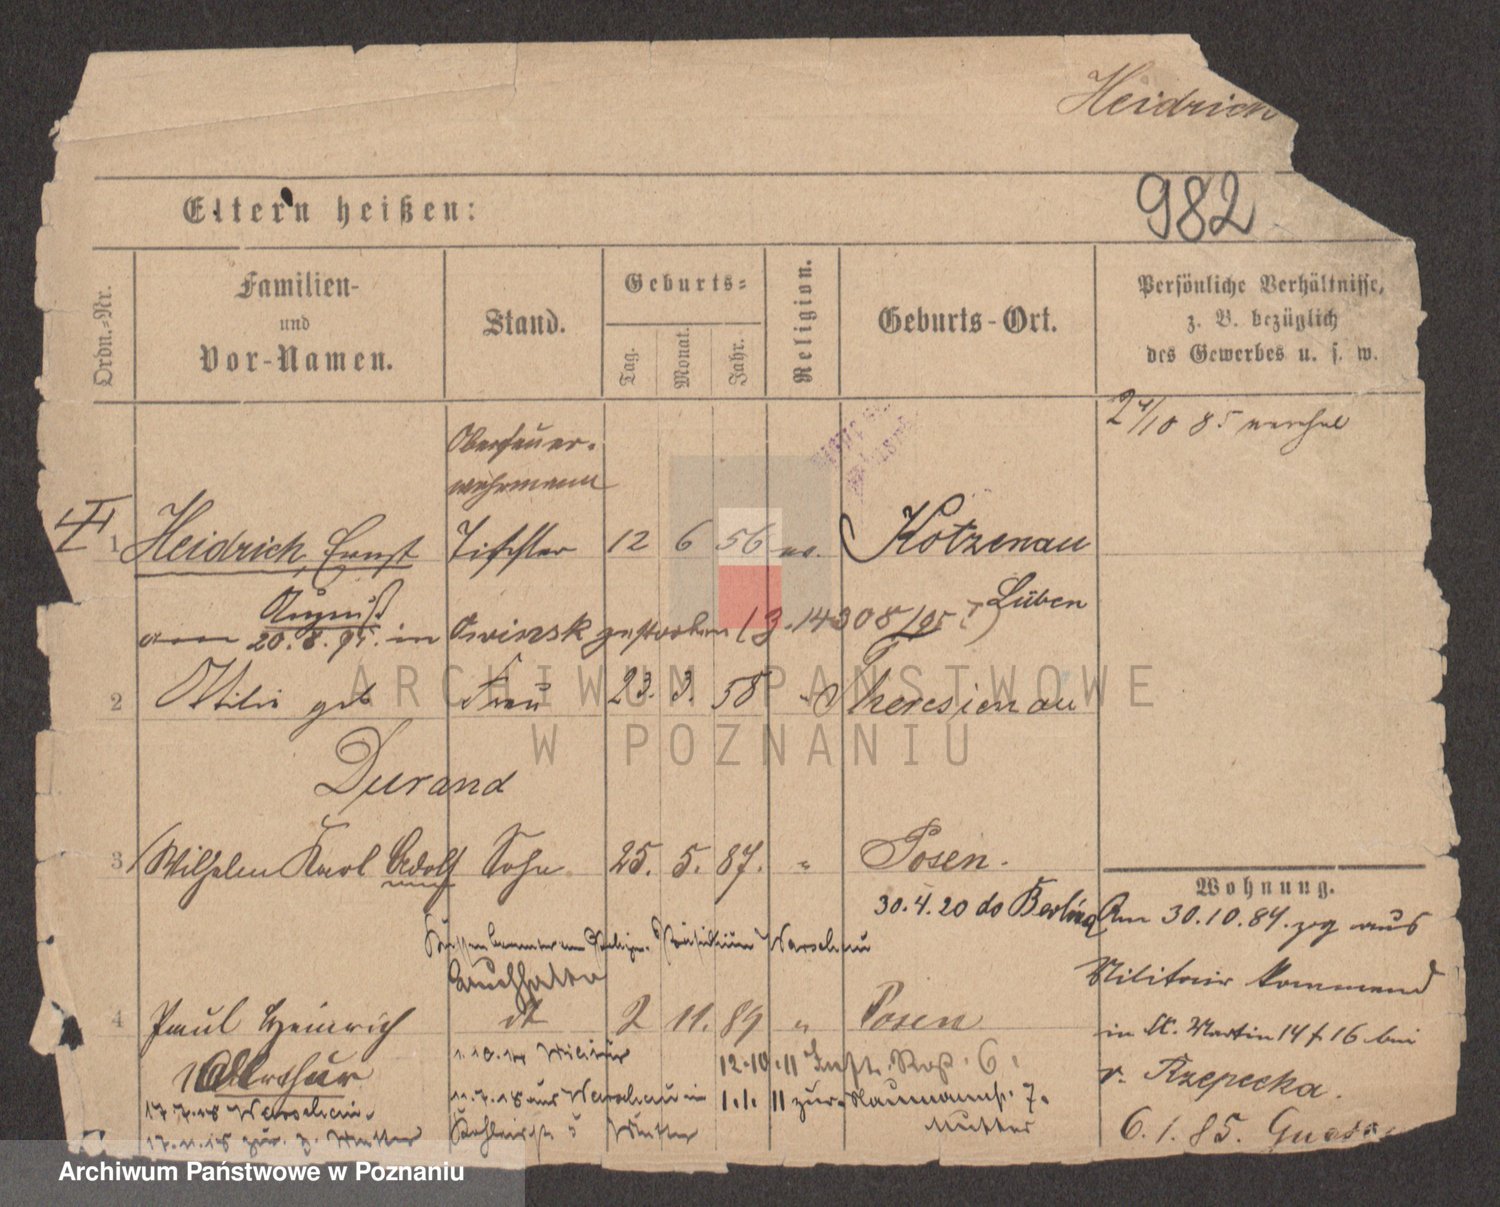 Heidrich
982
Eltern heißen:
Ordn.-Nr.
Familien-
und
Vor-Namen.
Stand.
Geburts-
Tag.
Monat.
Jahr.
Religion.
Geburts-Ort.
Persönliche Verhältnisse,
z. B. bezüglich
des Gewerbes u. s. w.
24/10 85
Oberfeuer-
wehrmann
1 Heidrich, Ernst Tischler 12 6 56 ev. Kotzenau
August Lüben
am 20.8.95. in Owinsk gestorben (J. 14308/95
2 Ottilie geb Frau 23. 3. 58 " Theresienau
Durand
3 Wilhelm Karl Adolf Sohn 25. 5. 87. " Posen.
30.4.20 do Berlina
Warschau
4 Paul Heinrich dt 2 11. 89 " Posen
Arthur
12.10.11 6.
17.7.18 Warschau.
11.7.18 aus Warschau in
1.1.11 zur Naumannst. 7.
Mutter
17.11.18 zur. z. Mutter
Mutter
Wohnung.
Am 30.10.84. zog aus
Militair kommend
in St. Martin 14/16 bei
v. Rzepecka.
6.1.85.
ARCHIWUM PAŃSTWOWE
W POZNANIU
Archiwum Państwowe w Poznaniu